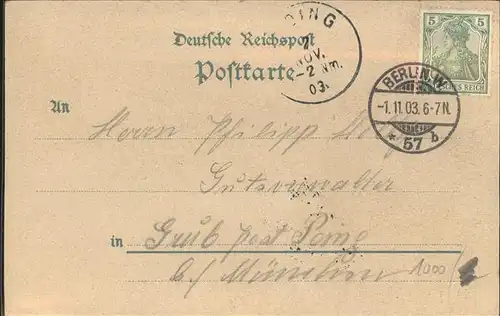 Deutsche Reichspost
Postkarte
ING
NOV.
2 Nm.
03.
5 5
REICH
BERLIN W.
-1.11.03. 6-7N.
* 57 b
An
Herrn Philipp
Gutsverwalter
in Grub post Poing
b/ München
1000